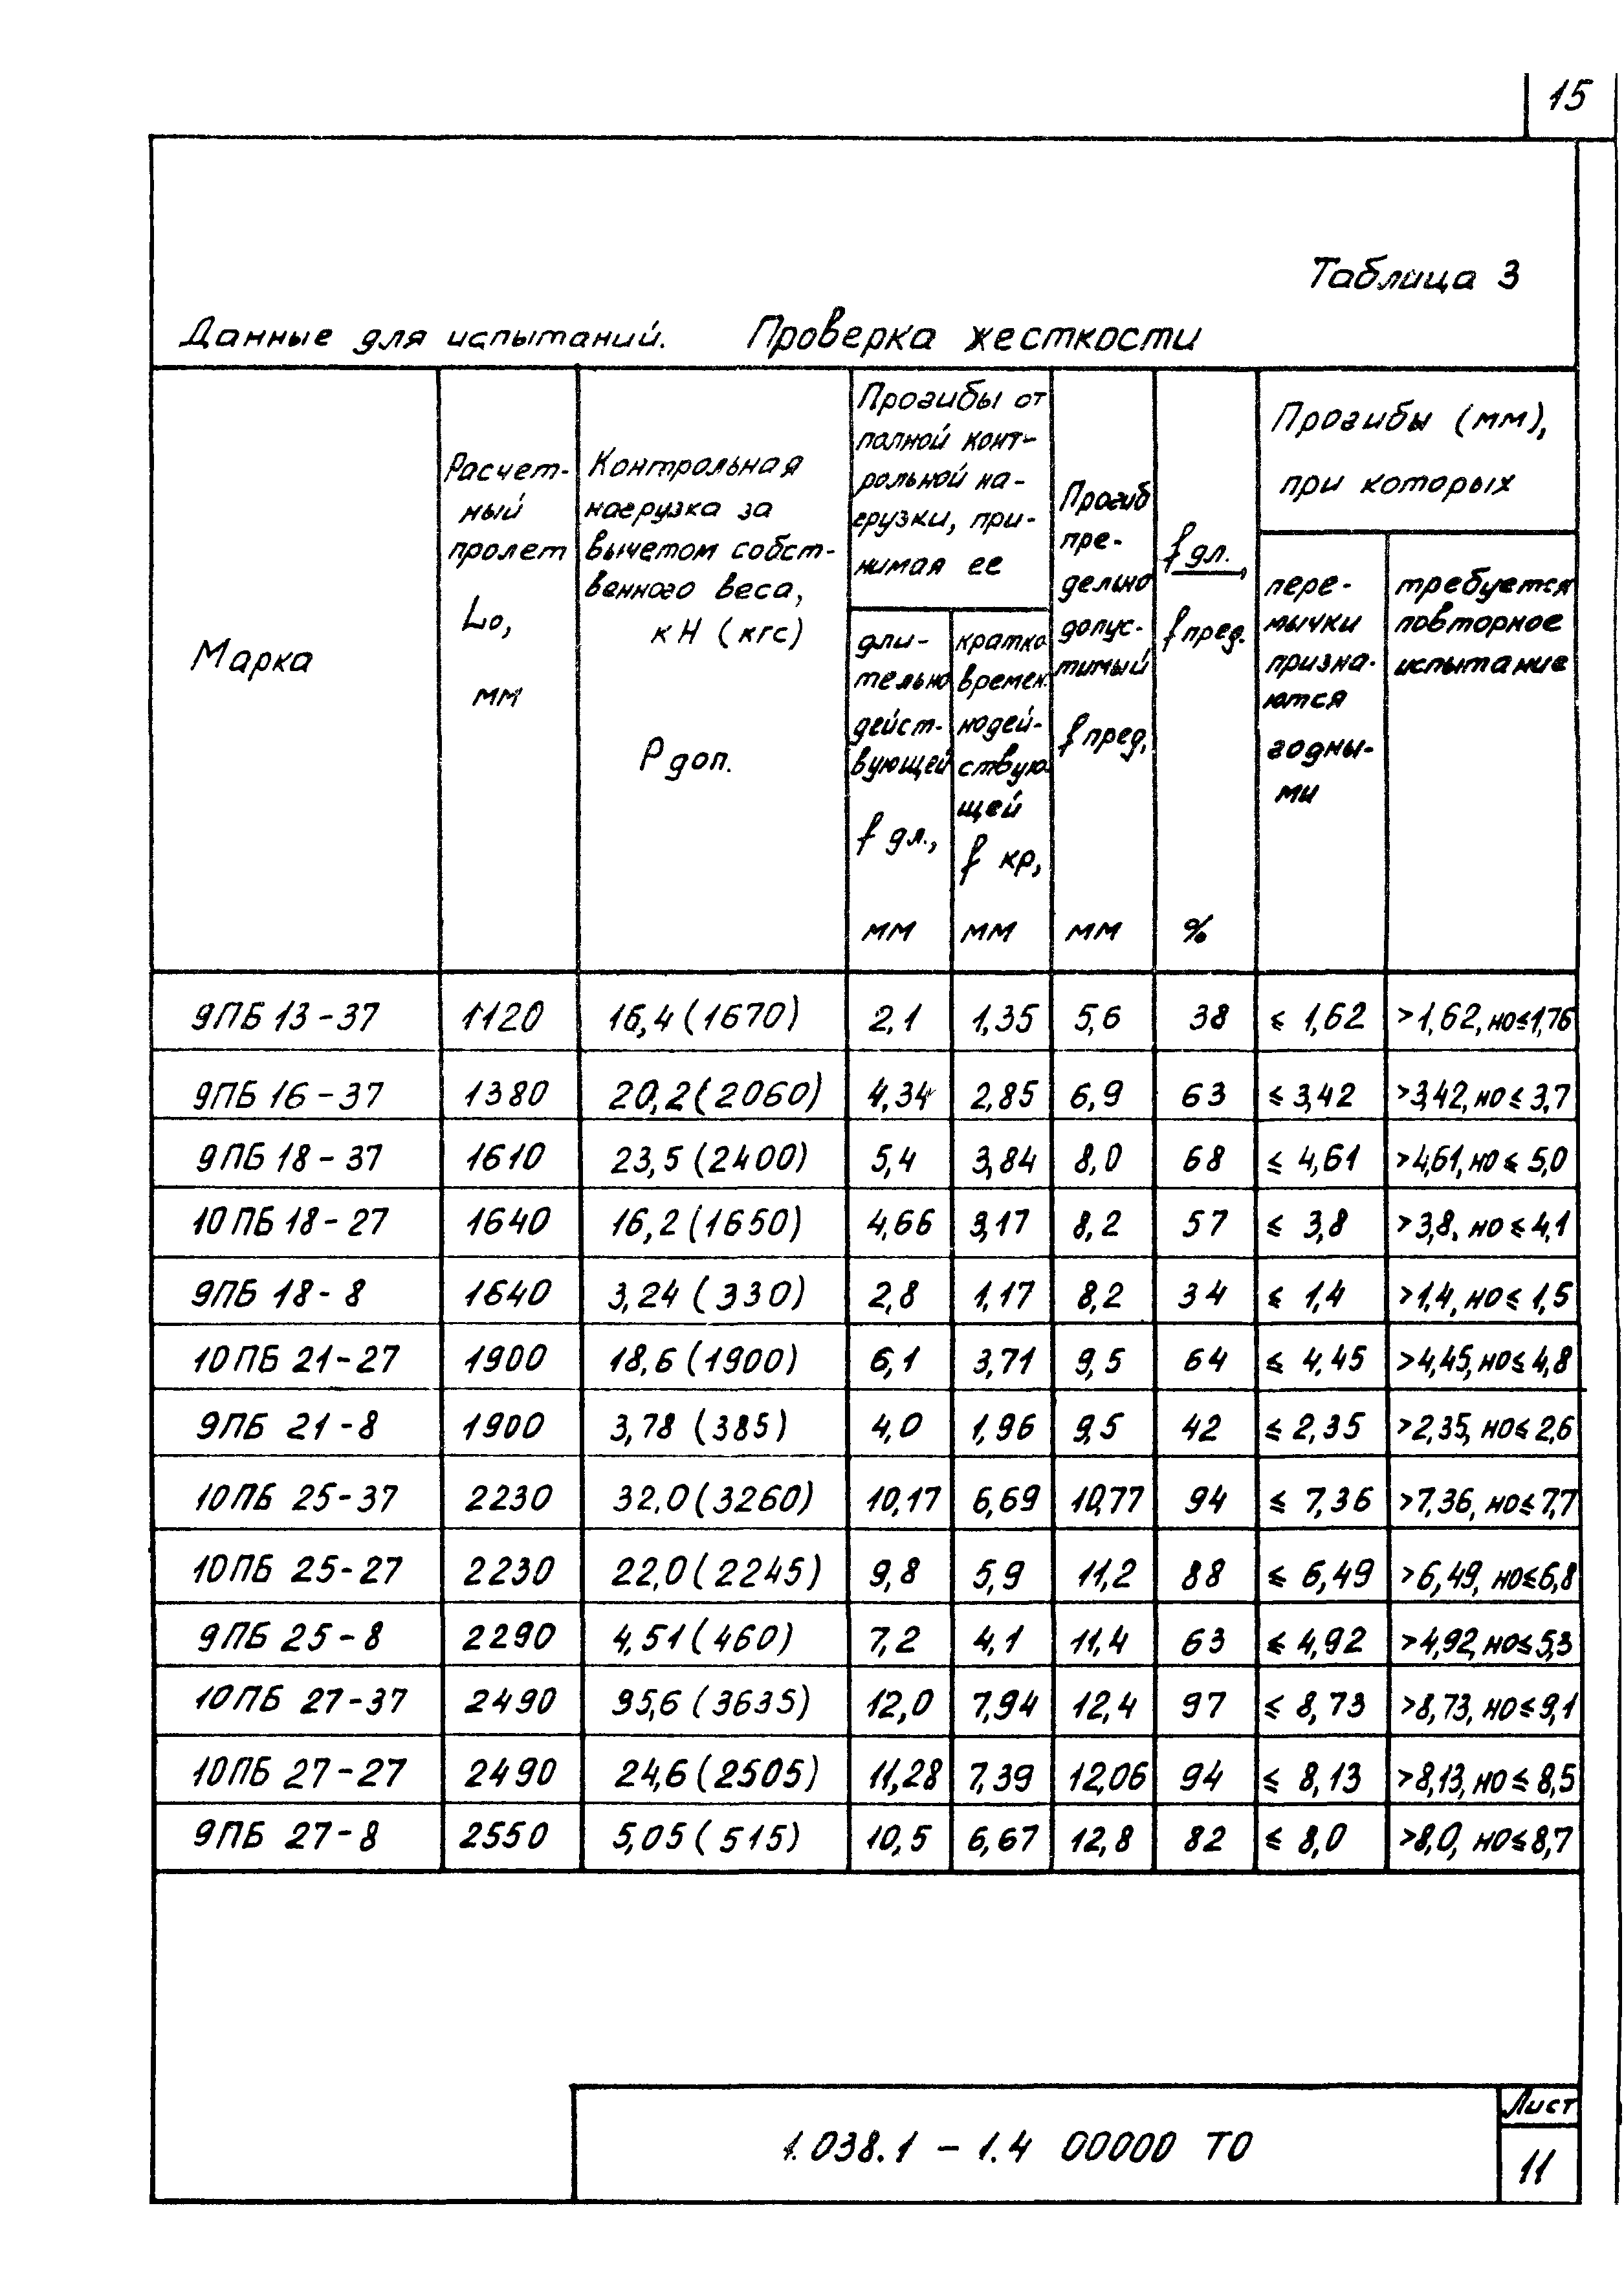 15
Таблица 3
Данные для испытаний. Проверка жесткости
Марка
Расчет-
ный
пролет
Lо,
мм
Контрольная
нагрузка за
вычетом собст-
венного веса,
кН (кгс)
Р доп.
Прогибы от
полной конт-
рольной на-
грузки, при-
нимая ее
дли-
тельно
дейст-
вующей
f дл.,
мм
кратко
времен.
нодей-
ствую-
щей
f кр,
мм
Прогиб
пре-
дельно
допус-
тимый
f пред,
мм
f дл.,
f пред.
%
Прогибы (мм),
при которых
пере-
мычки
призна-
ются
годны-
ми
требуется
повторное
испытание
9ПБ 13-37 1120 16,4 (1670) 2,1 1,35 5,6 38 ≤ 1,62 >1,62, но≤1,76
9ПБ 16-37 1380 20,2 (2060) 4,34 2,85 6,9 63 ≤ 3,42 >3,42, но ≤ 3,7
9ПБ 18-37 1610 23,5 (2400) 5,4 3,84 8,0 68 ≤ 4,61 >4,61, но ≤ 5,0
10ПБ 18-27 1640 16,2 (1650) 4,66 3,17 8,2 57 ≤ 3,8 >3,8, но ≤ 4,1
9ПБ 18-8 1640 3,24 (330) 2,8 1,17 8,2 34 ≤ 1,4 >1,4, но ≤ 1,5
10ПБ 21-27 1900 18,6 (1900) 6,1 3,71 9,5 64 ≤ 4,45 >4,45, но ≤ 4,8
9ПБ 21-8 1900 3,78 (385) 4,0 1,96 9,5 42 ≤ 2,35 >2,35, но ≤ 2,6
10ПБ 25-37 2230 32,0 (3260) 10,17 6,69 10,77 94 ≤ 7,36 >7,36, но ≤ 7,7
10ПБ 25-27 2230 22,0 (2245) 9,8 5,9 11,2 88 ≤ 6,49 >6,49, но≤6,8
9ПБ 25-8 2290 4,51 (460) 7,2 4,1 11,4 63 ≤ 4,92 >4,92, но≤5,3
10ПБ 27-37 2490 35,6 (3635) 12,0 7,94 12,4 97 ≤ 8,73 >8,73, но ≤ 9,1
10ПБ 27-27 2490 24,6 (2505) 11,28 7,39 12,06 94 ≤ 8,13 >8,13, но ≤ 8,5
9ПБ 27-8 2550 5,05 (515) 10,5 6,67 12,8 82 ≤ 8,0 >8,0, но ≤ 8,7
1.038.1 - 1.4 00000 ТО
Лист
11